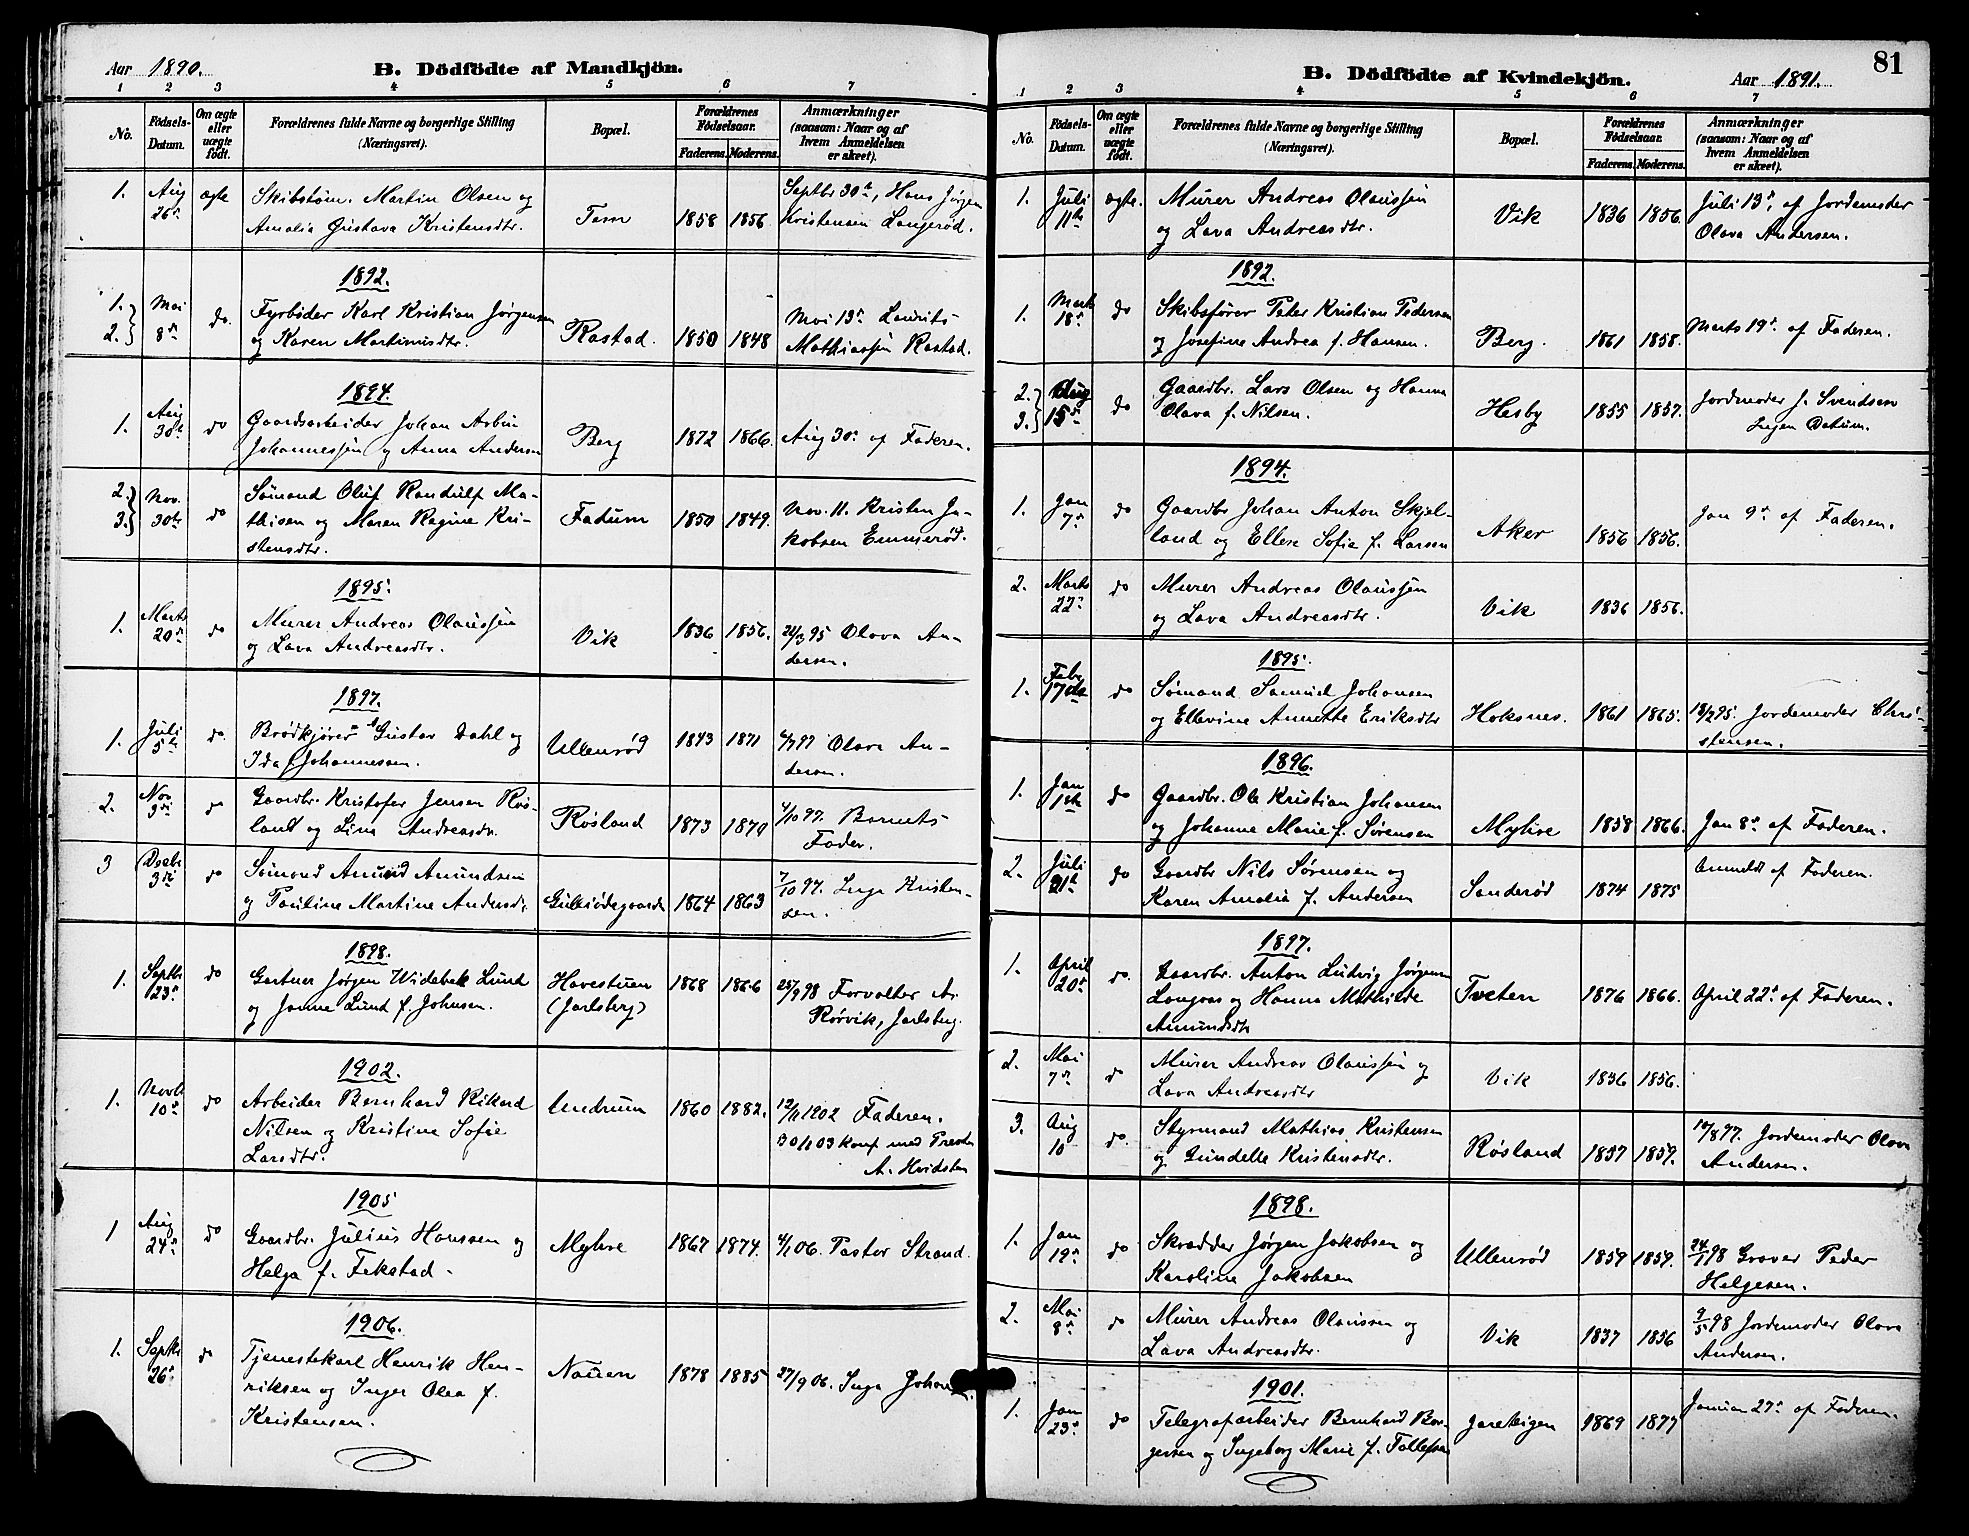 Aar 1890.
B. Dödfödte af Mandkjön.
1 2 3 4 5 6 7
No.
Födsels-Datum.
Om ægte eller uægte födt.
Forældrenes fulde Navne og borgerlige Stilling
(Næringsvei).
Bopæl.
Forældrenes Födselsaar.
Faderens. Moderens.
Anmærkninger
(saasom: Naar og af
hvem Anmeldelsen
er skeet).
1. Aug 26de ægte Skibstøm. Martin Olsen og Tem 1858 1856 Septbr 30te, Hans Jørgen
Amalia Gustava Kristensdtr. Kristensen Langerød.
1892.
1. 2. Mai 8de do. Fyrbøder Karl Kristian Jørgensen Rastad. 1850 1848 Mai 13de Laurits
og Karen Martinusdtr. Mathiassen Rastad.
1894.
1. Aug 30te do Gaardsarbeider Johan Arbin Berg 1872 1866. Aug 30te af Faderen.
Johannessen og Anna Andersen
2. 3. Nov. 30te do Sømand Oluf Randulf Ma- Fadum 1850 1849. Nov. 11. Kristen Ja-
thisen og Maren Regine Kri- kobsen Emmerød.
stensdtr.
1895.
1. Marts 20de do Murer Andreas Olaussen Vik 1836 1856. 21/3 95 Olava An-
og Lava Andreasdtr. dersen.
1897.
1. Juli 5te do. Brødkjører Gustav Dahl og Ullenrød 1843 1871 6/7 97 Olava An-
Ida f. Johannessen. dersen.
2. Nov 3di do Gaardbr. Kristofer Jensen Røs- Røsland 1873 1870 4/10 97. Barnets
land og Lina Andreasdtr. Fader.
3 Decbr 3di do Sømand Amund Amundsen 1864 1863 7/10 97. Inga Kristen-
og Pauline Martine Andersdtr. sen.
1898.
1. Septbr 23de do Gartner Jørgen Widebek Lund Havestuen 1868 1866 25/9 98 Forvalter A.
og Janne Lund f. Johnsen. (Jarlsberg) Rørvik, Jarlsberg.
1902.
1. Novbr 10de do Arbeider Bernhard Rikard Undrum 1860 1882. 12/11 1902 Faderen.
Nilsen og Kristine Sofie 30/1 03 konf med Presten
Larsdtr. A. Hvidsten
1905
1 Aug 24de do Gaardbr. Julius Hanssen og Myhre 1867 1874. 4/1 06. Pastor Strand.
Helga f. Fekstad.
1906.
1. Septbr 26de do Tjenestekarl Henrik Hen- Nauen 1878 1885 27/9 06. Inga
riksen og Inger Olea f.
Kristensen.
81
B. Dödfödte af Kvindekjön.
Aar 1891.
1 2 3 4 5 6 7
No.
Födsels-Datum.
Om ægte eller uægte födt.
Forældrenes fulde Navne og borgerlige Stilling
(Næringsvei).
Bopæl.
Forældrenes Födselsaar.
Faderens. Moderens.
Anmærkninger
(saasom: Naar og af
hvem Anmeldelsen
er skeet).
1. Juli 11te ægte. Murer Andreas Olaussen Vik 1836 1856. Juli 13de, af Jordemoder
og Lava Andreasdtr. Olava Andersen.
1892.
1. Marts 18de do Skibsfører Peter Kristian Pedersen Berg. 1861 1858. Marts 19de af Faderen.
og Josefine Andrea f. Hansen.
2. 3. Aug 15de do Gaardbr. Lars Olsen og Hanna Hesby 1855 1857. Jordemoder J. Svendsen
Olava f. Nilsen. Ingen Datum.
1894.
1. Jan 7de do Gaardbr Johan Anton Skjel- Aker 1856 1856. Jan 9de af Faderen.
land og Ellen Sofie f. Larsen
2. Marts 22de do Murer Andreas Olaussen Vik 1836 1856.
og Lava Andreasdtr.
1895.
1. Febr 17de do Sømand Samuel Johansen Hoksnes. 1861 1865. 18/2 95. Jordemoder Chri-
og Ellevine Annette Eriksdtr stensen.
1896.
1. Jan 1ste do Gaardbr. Ole Kristian Johansen Myhre 1858 1866. Jan 8de af Faderen.
og Johanne Marie f. Sørensen
2. Juli 21de do Gaardbr Nils Sørensen og Sanderød 1874 1875 Anmeldt af Faderen.
Karen Amalia f. Andersen
1897.
1. April 20de do. Gaardbr. Anton Ludvig Jørgensen Tveten 1876 1866. April 22de af Faderen.
Langaas og Hanna Mathilde
Amundsdtr
2. Mai 7de do Murer Andreas Olaussen og Vik 1836 1856.
Lava Andreasdtr
3. Aug 10 do. Styrmand Mathias Kristensen Røsland 1837 1859. 10/8 97. Jordemoder Olava
og Gundelle Kristensdtr. Andersen.
1898.
1. Jan 19de do Skrædder Jørgen Jakobsen og Ullenrød 1859 1859. 24/1 98 Graver Peder
Karoline Jakobsen Helgesen.
2. Mai 8de do Murer Andreas Olaussen og Vik 1837 1856 9/5 98 Jordemoder Olava
Lava Andreasdtr. Andersen.
1901.
1. Jan 23de do Telegrafarbeider Bernhard Bor- Jareteigen 1869 1877 Januar 27de af Faderen.
gersen og Ingeborg Marie f. Tollefsen